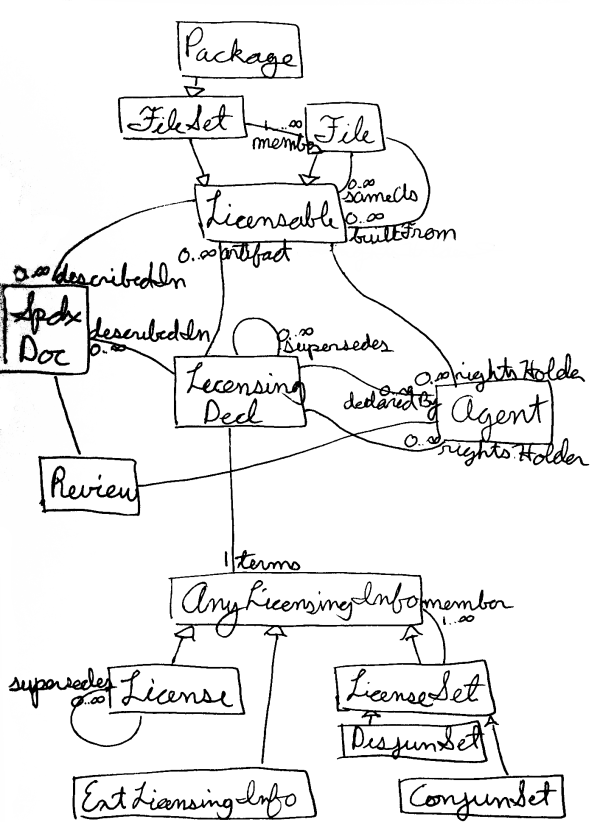 Package
FileSet
1..∞
member
File
0..∞
sameAs
Licensable
0..∞
builtFrom
0..∞ artifact
0..∞ describedIn
Spdx
Doc
describedIn
0..∞
0..∞
supersedes
Licensing
Decl
0..∞
declaredBy
0..∞ rightsHolder
Agent
0..∞ rightsHolder
Review
1 terms
AnyLicensingInfo
member
1..∞
supersedes
0..∞
License
LicenseSet
DisjunSet
ExtLicensingInfo
ConjunSet